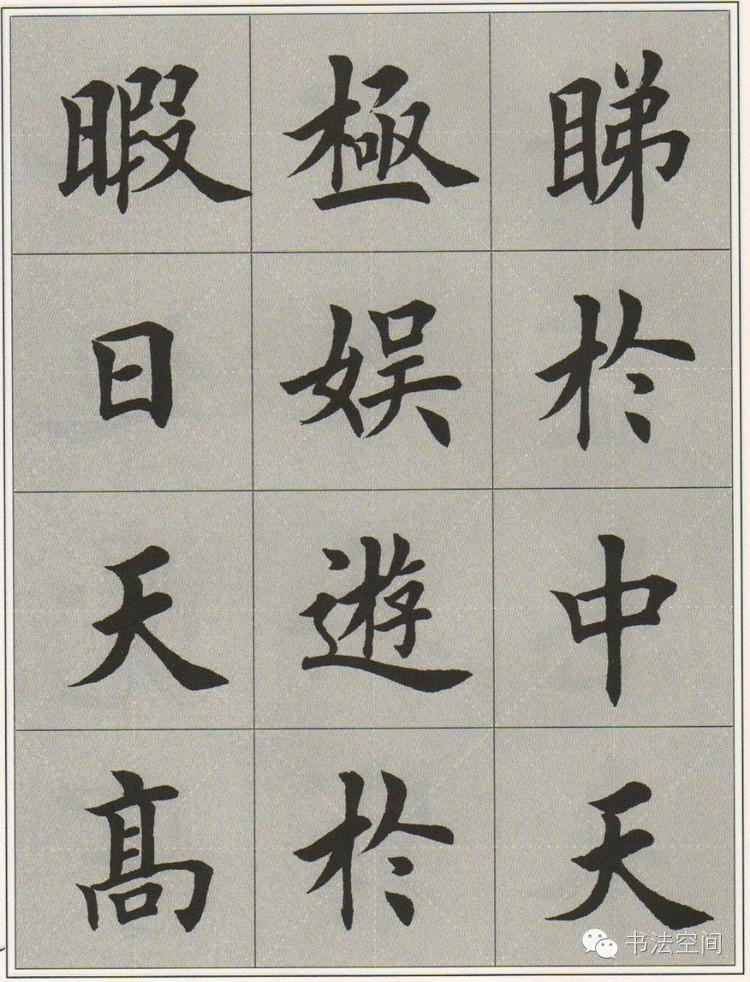 睇於中天
極娯遊於
暇日天高
书法空间